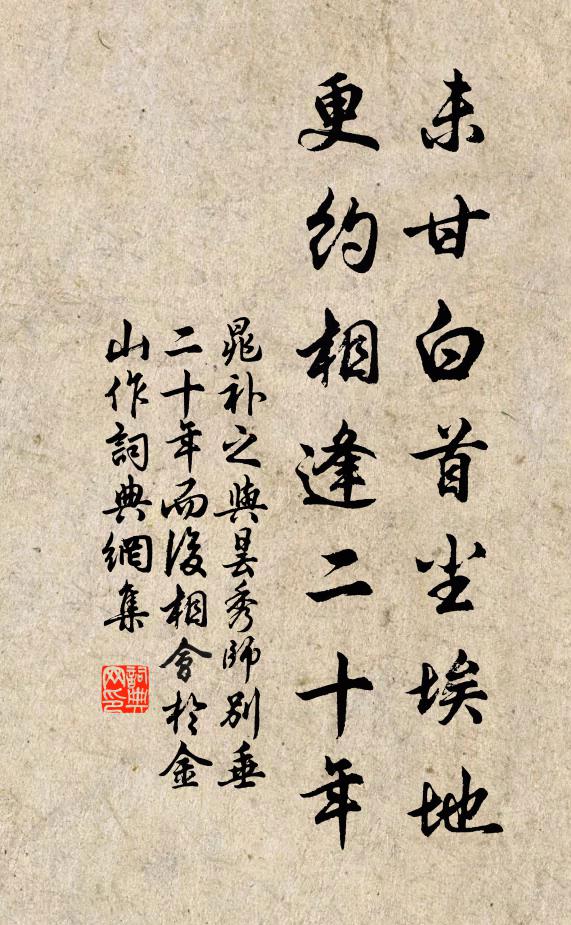 未甘白首尘埃地
更约相逢二十年
晁补之與昙秀師别垂
二十年而後相會於金
山作詞典網集
詞典
网印